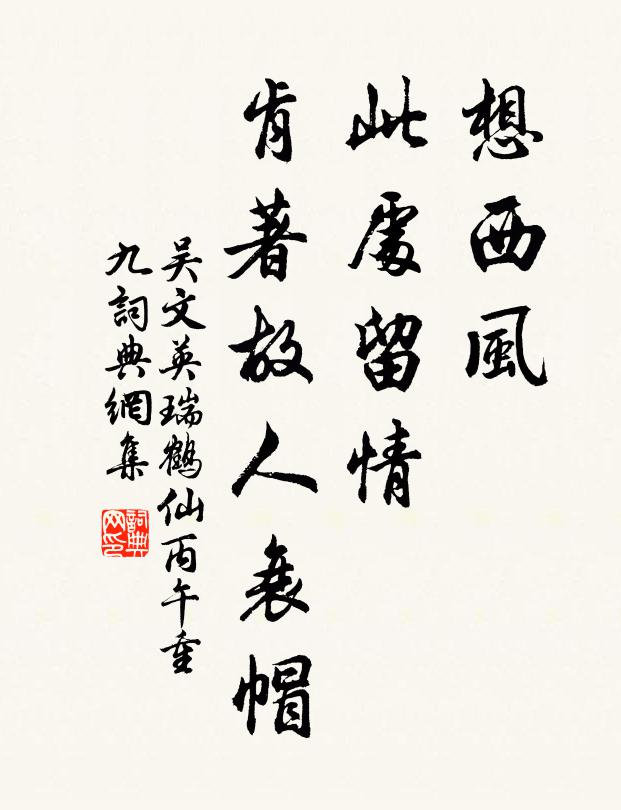 想西風
此處留情
肯著故人衰帽
吴文英瑞鶴仙丙午重
九詞典網集
詞典
网印